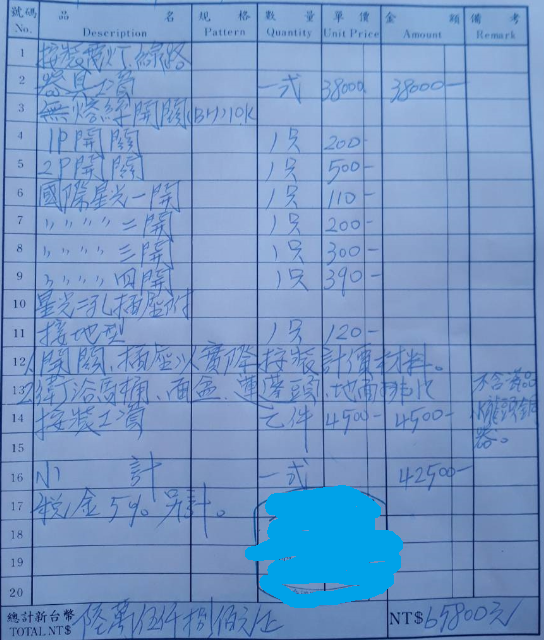 號碼 品名 規格 數量 單價 金額 備考
No. Description Pattern Quantity Unit Price Amount Remark
1 接裝電灯、線路
2 器具工資 一式 38000 38000-
3 無熔絲開關(BH)10K
4 1P開關 1只 200-
5 2P開關 1只 500-
6 國際星光一開 1只 110-
7 〃〃〃〃二開 1只 200-
8 〃〃〃〃三開 1只 300-
9 〃〃〃〃四開 1只 390-
10 星光二孔插座附
11 接地型 1只 120-
12 1.開關、插座以實際接裝計價+材料。
13 2.衛浴馬桶、面盆、蓮蓬頭、地面排水 不含商品
14 接裝工資 4500- 4500- 水龍頭銅
15 器。
16 小計 一式 42500-
17 稅金5%另計。
18
19
20
總計新台幣 陸萬伍仟捌佰元正 NT$65800元
TOTAL NT$